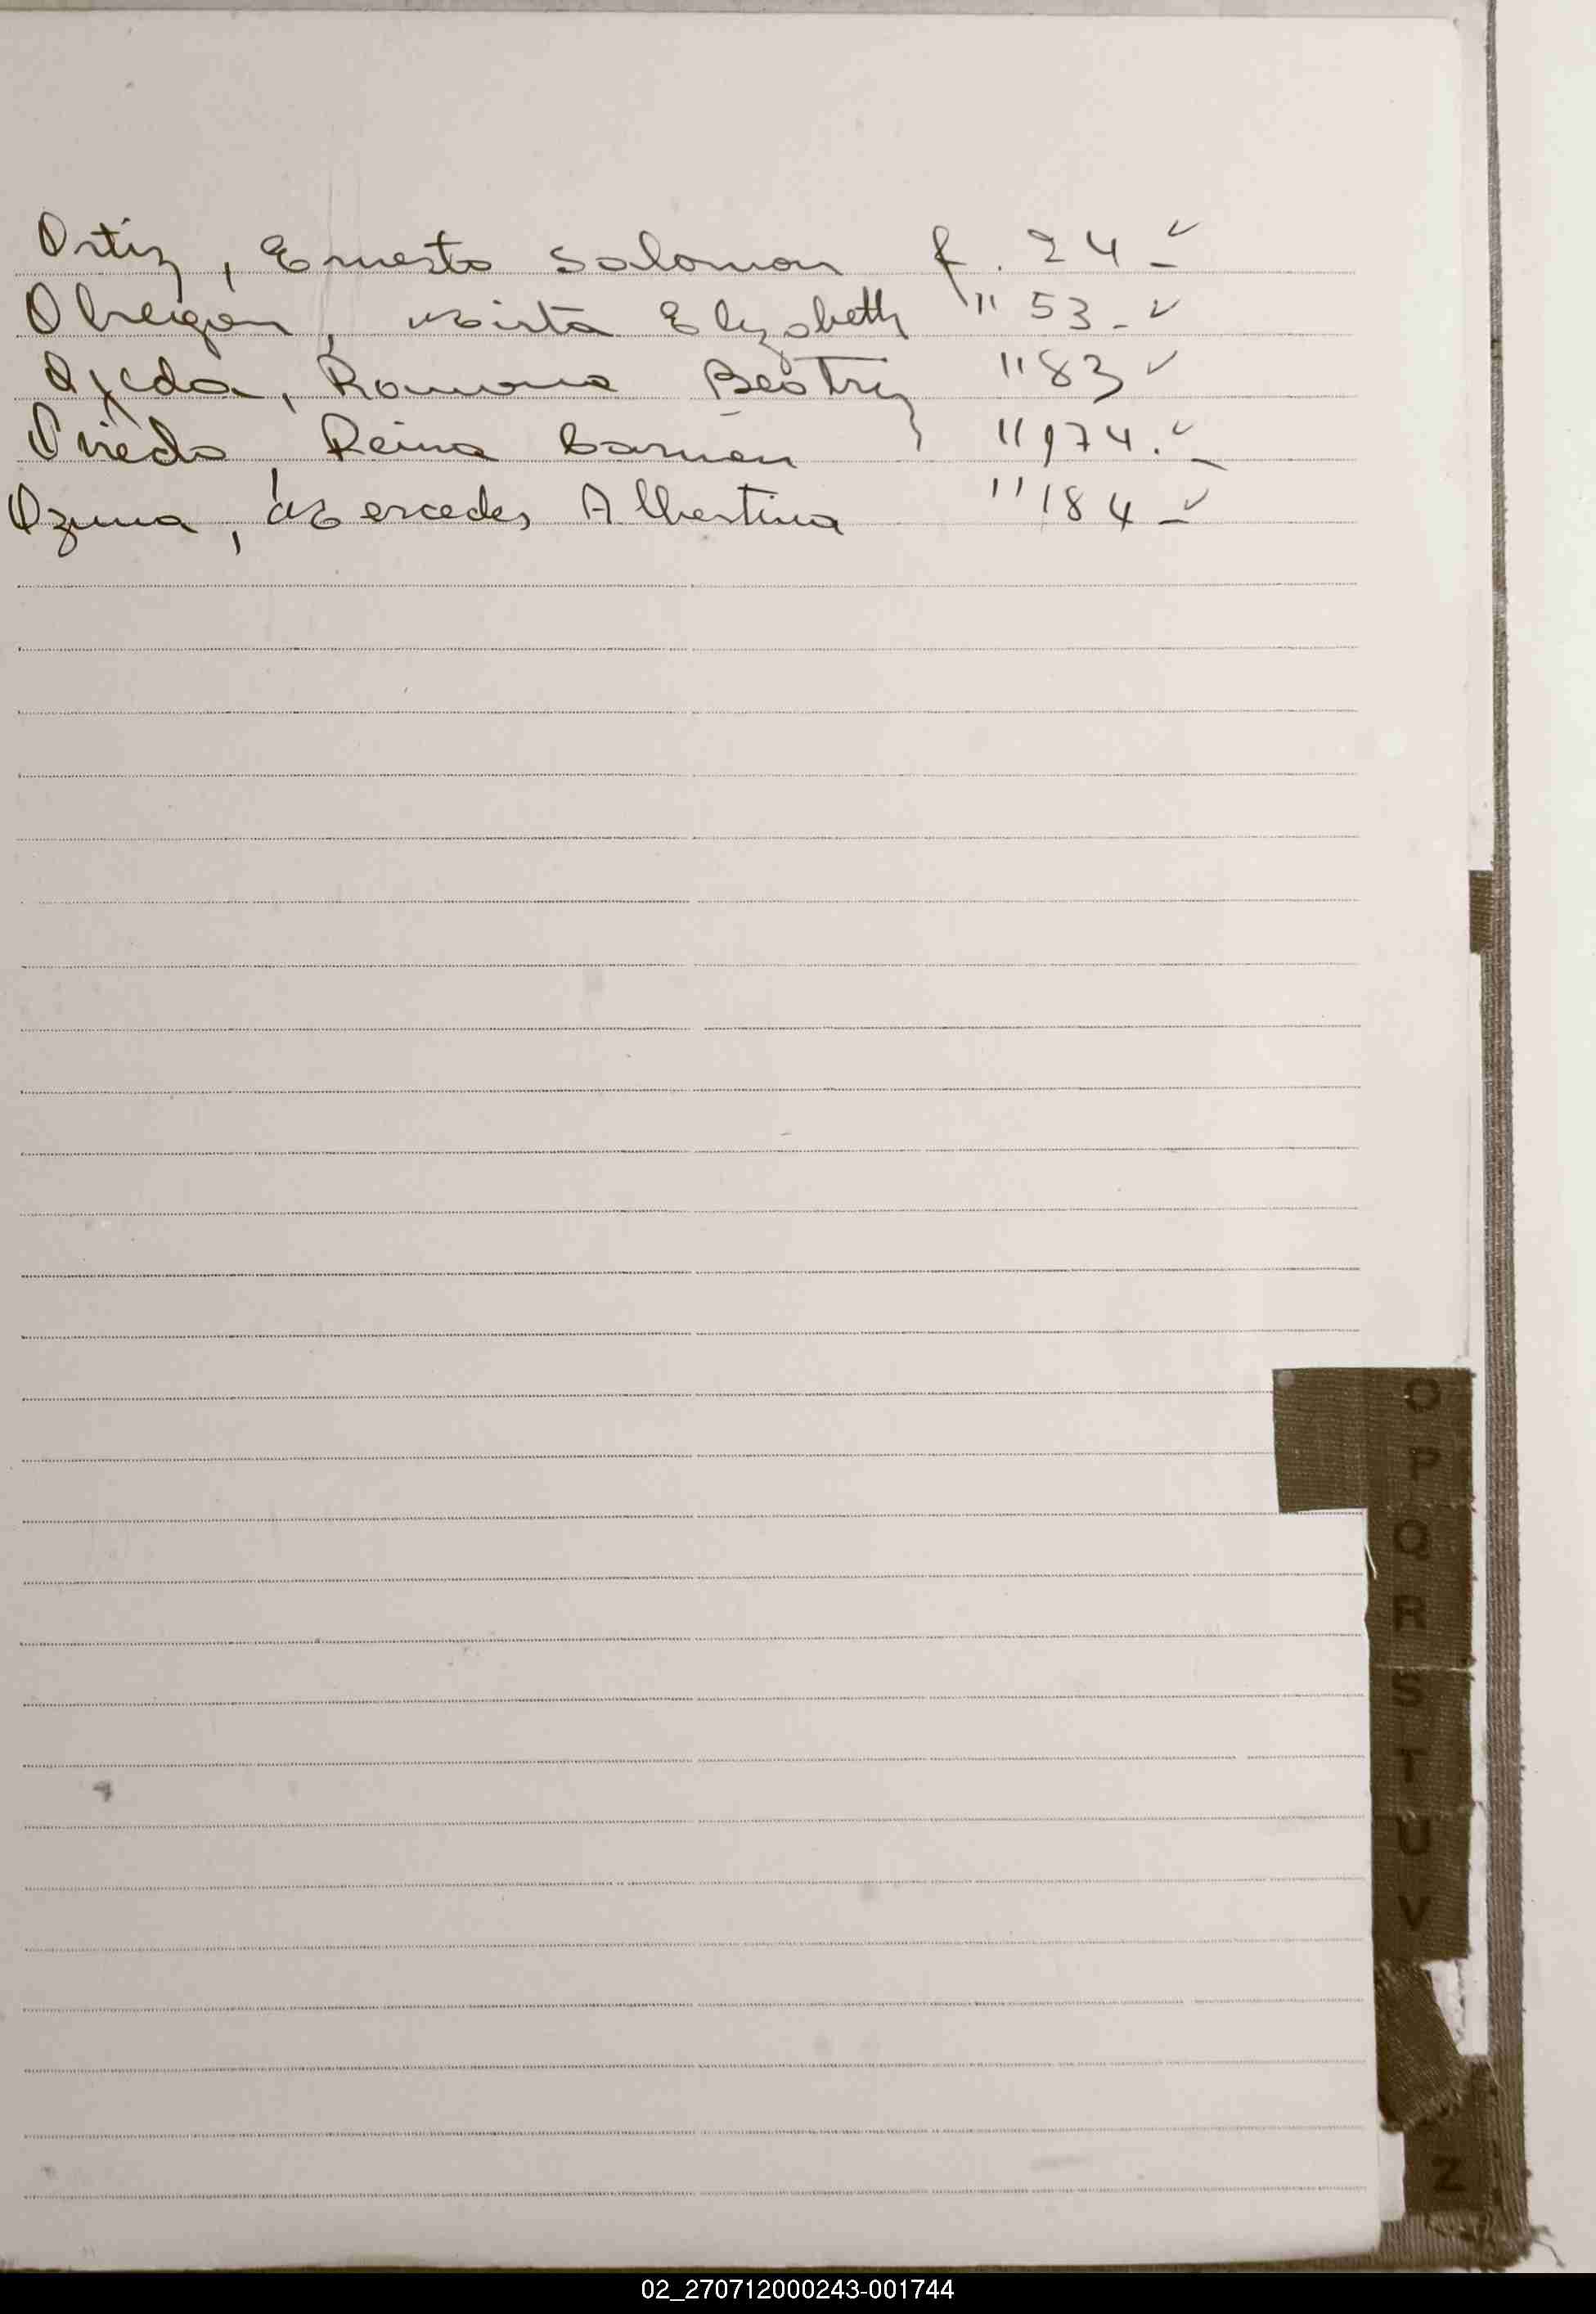 Ortiz, Ernesto Salomon f. 24 - ✓
Obregon, Mirta Elizabeth " 53 - ✓
Ojeda, Ramona Beatriz " 83 ✓
Oviedo, Reina Carmen " 174. - ✓
Ozuna, Mercedes Albertina " 184 - ✓
O
P
Q
R
S
T
U
V
Z
02_270712000243-001744